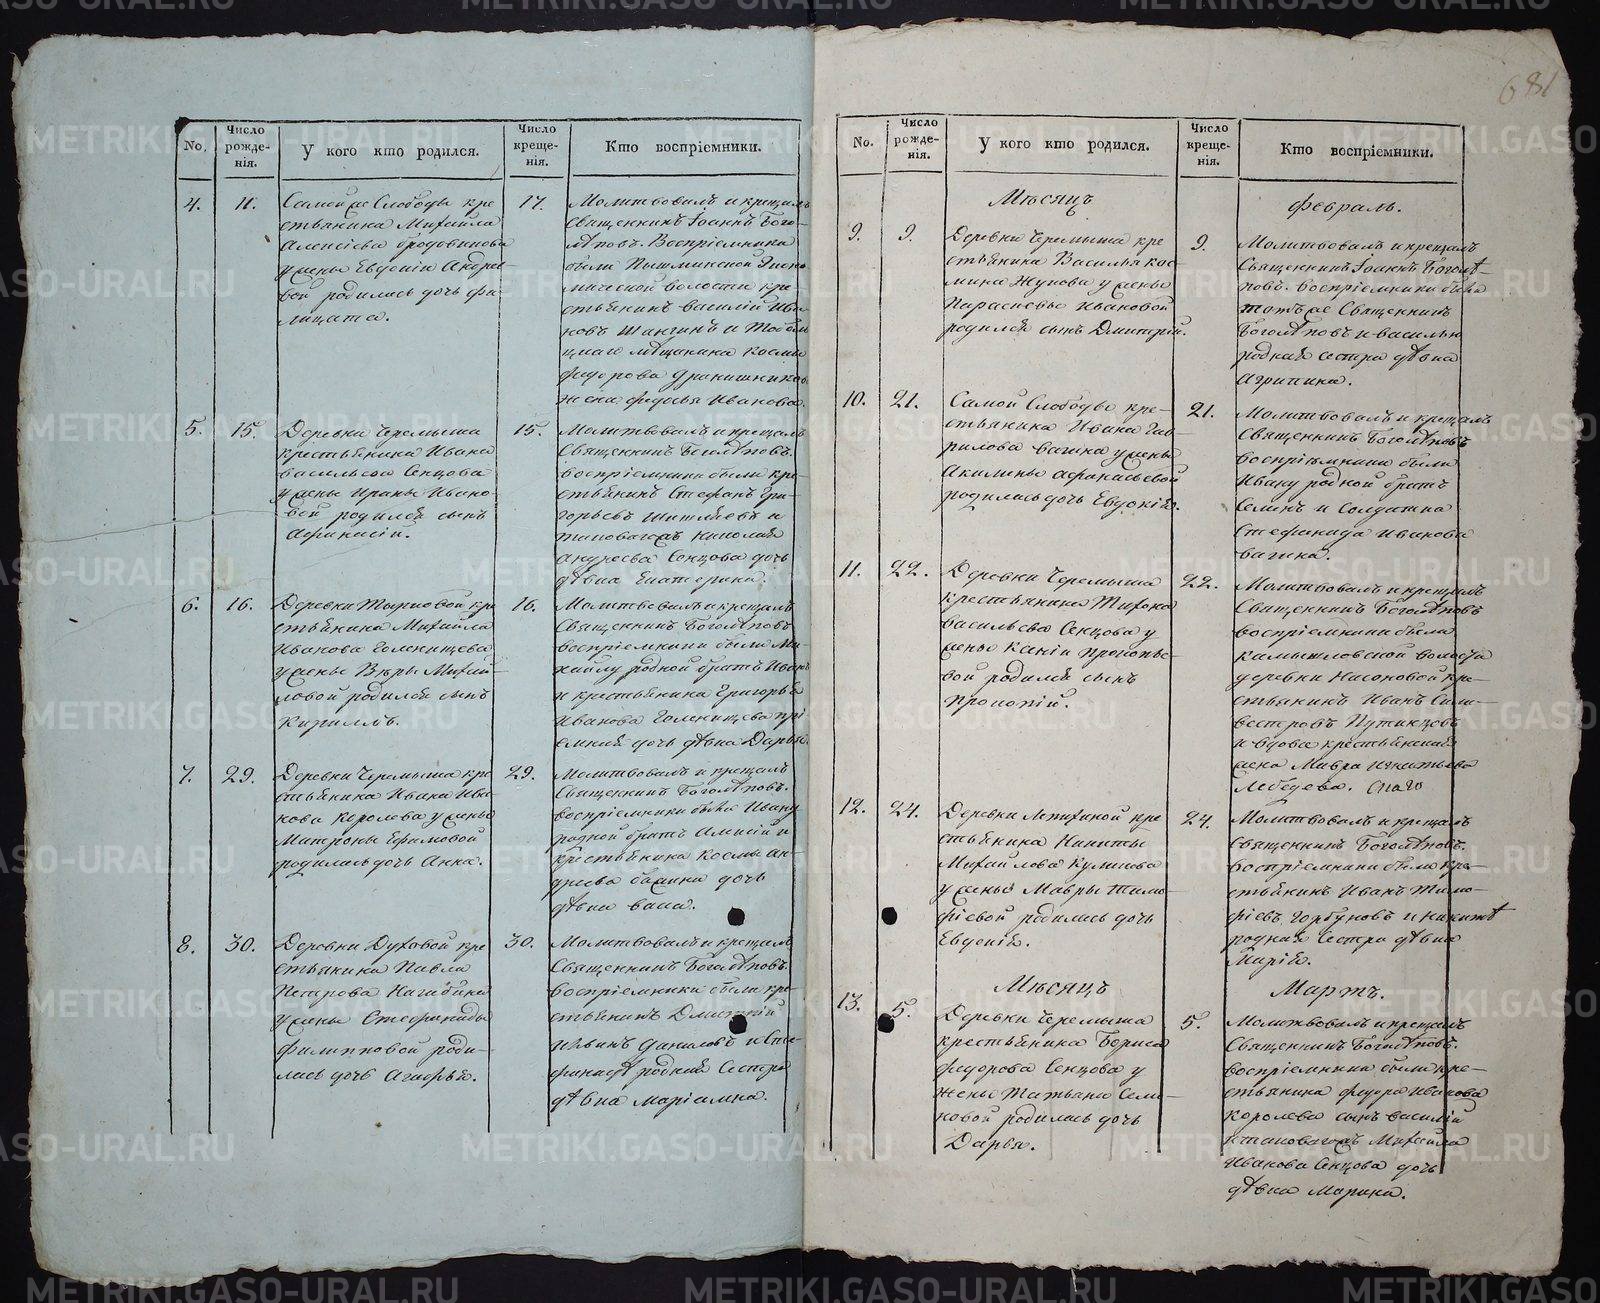 681
No.
Число рожденія.
У кого кто родился.
Число крещенія.
Кто воспріемники.
4.
11.
Самой же Слободы кре
стьянина Михаила
Алексѣева Бродовикова
у жены Евдокіи Андре-
вой родилась дочь Фи-
лицата.
17.
Молитвовалъ и крещалъ
Священникъ Іоаннъ Бого-
лѣповъ. Воспріемники
были Пышминской Эконо
мической волости кре-
стьянинъ Василій Ива
новъ Шангинъ и
мѣщанина Космы
Федорова
жена Федосья Иванова.
5.
15.
Деревни Черемыша
крестьянина Ивана
Васильева Сенцова
у жены Ирины Ивано-
вой родился сынъ
Афанасій.
15.
Молитвовалъ и крещалъ
Священникъ Боголѣповъ.
воспріемники были кре-
стьянинъ Стефанъ Гри-
горьевъ и
таковагожъ
Андреева Сенцова дочь
дѣвка Екатерина.
6.
16.
Деревни Тыпковой кре
стьянина Михаила
Иванова Голенищева
у жены Вѣры Михай-
ловой родился сынъ
Кириллъ.
16.
Молитвовалъ и крещалъ
Священникъ Боголѣповъ
воспріемники были Ми
хайлу родной братъ Иванъ
и крестьянина Григорья
Иванова Голенищева прі
емная дочь дѣвка Дарья.
7.
29.
Деревни Черемыша кре
стьянина Ивана Ива
нова Королева у жены
Матроны Ефимовой
родилась дочь Анна.
29.
Молитвовалъ и крещалъ
Священникъ Боголѣповъ.
воспріемники были Ивану
родной братъ Алексій и
крестьянина Космы Ан-
дреева дочь
дѣвка
8.
30.
Деревни Духовой кре
стьянина Павла
Петрова Нагибина
у жены Стефаниды
Филипповой роди-
лась дочь Агафья.
30.
Молитвовалъ и крещалъ
Священникъ Боголѣповъ.
воспріемники были кре-
стьянинъ Дмитрій
Даниловъ и Сте-
фанидѣ родная Сестра
дѣвка Маріамна.
No.
Число рожденія.
У кого кто родился.
Число крещенія.
Кто воспріемники.
Мѣсяцъ
Февраль.
9.
9.
Деревни Черемыша кре
стьянина Василья Кос-
мина Жунова у жены
Парасковьи Ивановой
родился сынъ Дмитрій.
9.
Молитвовалъ и крещалъ
Священникъ Іоаннъ Боголѣ-
повъ. воспріемники были
тотъ же Священникъ
Боголѣповъ и Василью
родная сестра дѣвка
Агрипина.
10.
21.
Самой Слободы кре-
стьянина Ивана Гав-
рилова Вагина у жены
Акилины Афанасьевой
родилась дочь Евдокія.
21.
Молитвовалъ и крещалъ
Священникъ Боголѣповъ
воспріѣмники были
Ивану родной братъ
Семенъ и Солдатка
Стефанида Иванова
Вагина.
11.
22.
Деревни Черемыша
крестьянина Тихона
Васильева Сенцова у
жены Ксеніи Прокопье-
вой родился сынъ
Прокопій.
22.
Молитвовалъ и крещалъ
Священникъ Боголѣповъ
воспріемники были
Камышловской волости
деревни Насоновой кре-
стьянинъ Иванъ Сили-
вестровъ Путинцовъ
и вдова крестьянская
жена Мавра Игнатьева
Лебедева.
12.
24.
Деревни Лепихиной кре
стьянина Никиты
Михайлова Куликова
у жены Мавры Тимо-
фіевой родилась дочь
Евгенія.
24.
Молитвовалъ и крещалъ
Священникъ Боголѣповъ.
воспріемники были кре-
стьянинъ Иванъ Тимо-
фіевъ Горбуновъ и Никитѣ
родная Сестра дѣвка
Марія.
Мѣсяцъ
Мартъ.
13.
5.
Деревни Черемыша
крестьянина Бориса
Федорова Сенцова у
жены Татьяны Семе-
новой родилась дочь
Дарья.
5.
Молитвовалъ и крещалъ
Священникъ Боголѣповъ.
воспріемники были кре-
стьянина Федора Иванова
Королева сынъ Василій
и таковагожъ Михаила
Иванова Сенцова дочь
дѣвка Марина.
METRIKI.GASO-URAL.RU